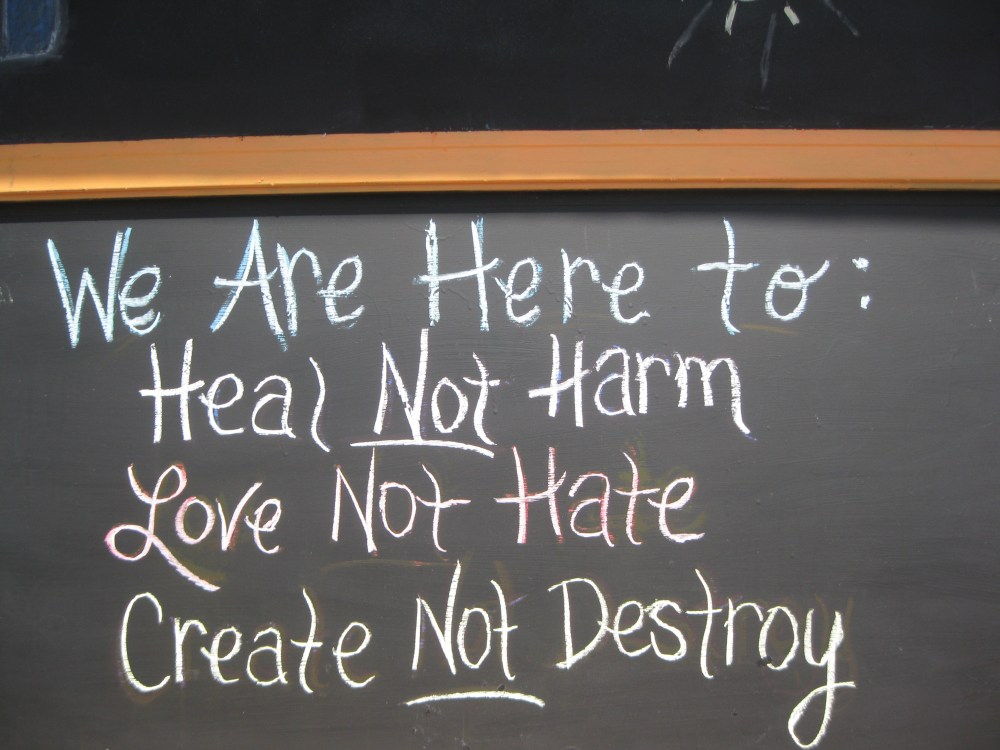 We Are Here to:
Heal Not Harm
Love Not Hate
Create Not Destroy